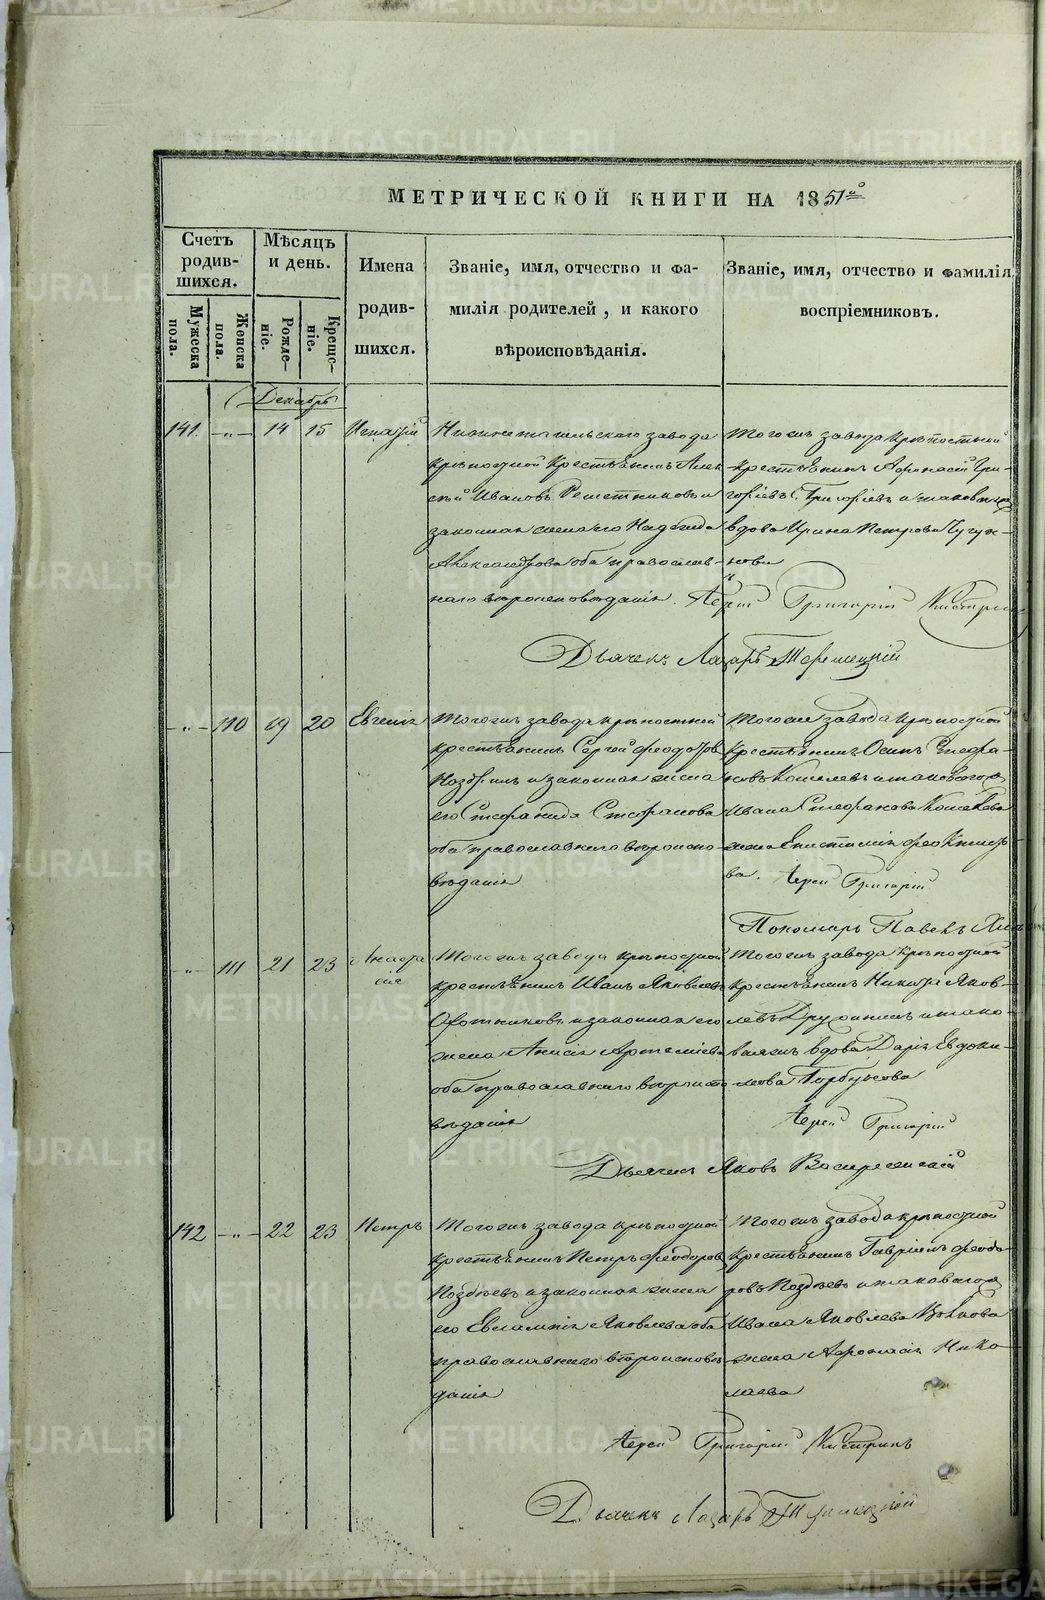 МЕТРИЧЕСКОЙ КНИГИ НА 1851го
Счетъ родив-шихся.
Мѣсяцъ и день.
Имена родив-шихся.
Званіе, имя, отчество и фа-
милія родителей, и какого
вѣроисповѣданія.
Званіе, имя, отчество и фамилія
воспріемниковъ.
Мужеска пола.
Женска пола.
Рожде-ніе.
Креще-ніе.
Декабрь
141. -„- 14 15 Игнатій
Нижнетагильскаго завода
крѣпостной крестьянинъ Алек
сѣй Ивановъ Решетниковъ и
законная жена его Надежда
Александрова оба православ-
наго вѣроисповѣданія.
Тогожъ завода крѣпостной
крестьянинъ Афонасій Гри-
горіевъ Григоріевъ и таковагожъ
вдова Ирина Петрова Чугун-
кова
Іерей Григорій
Дьячекъ Лазарь
-„- 110 19 20 Евгенія
Тогожъ завода крѣпостной
крестьянинъ Сергей Феодотовъ
и законная жена
его Стефанида Стефанова
оба православнаго вѣроиспо-
вѣданія
Тогоже завода крѣпостной
крестьянинъ Осипъ Стефа-
новъ Кошелевъ и таковагожъ
Ивана Стефанова Кошелева
жена
ва. Іерей Григорій
Пономарь Павелъ
-„- 111 21 23 Анаста
сія
Тогожъ завода крѣпостной
крестьянинъ Иванъ Яковлевъ
Охотниковъ и законная его
жена Анисія Артеміева
оба православнаго вѣроиспо
вѣданія
Тогожъ завода крѣпостной
крестьянинъ Никита Яков-
левъ Дружининъ и тако-
ваяжъ вдова Дарія Евдоки-
мова Горбунова
Іерей Григорій
Дьячекъ Яковъ Воскресенскій
142 -„- 22 23 Петръ
Тогожъ завода крѣпостной
крестьянинъ Петръ Феодоровъ
Поздѣевъ и законная жена
его Евлампія Яковлева оба
православнаго вѣроисповѣ
данія
Тогожъ завода крѣпостной
крестьянинъ Гавріилъ Феодо-
ровъ Поздѣевъ и таковагожъ
Ивана Яковлева Волкова
жена Афонасія Нико-
лаева
Іерей Григорій
Дьячекъ Лазарь
METRIKI.GASO-URAL.RU